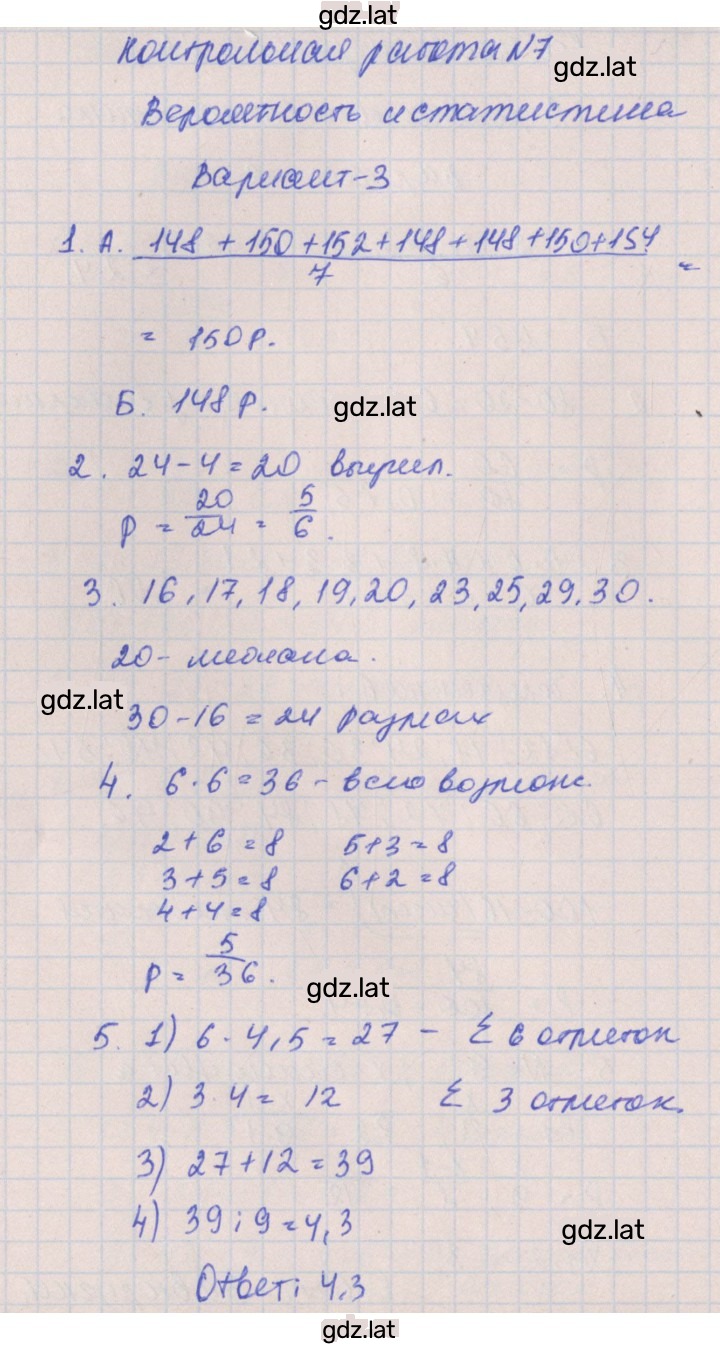 gdz.lat
Контрольная работа N7
gdz.lat
Вероятность и статистика
Вариант-3
1. А. 148 + 150 + 152 + 148 + 148 + 150 + 154 =
7
= 150 р.
Б. 148 р.
gdz.lat
2. 24 - 4 = 20 выучил.
P = 20/24 = 5/6.
3. 16, 17, 18, 19, 20, 23, 25, 29, 30.
20 - медиана.
gdz.lat
30 - 16 = 24 размах
4. 6 · 6 = 36 - всего возможн.
2 + 6 = 8 5 + 3 = 8
3 + 5 = 8 6 + 2 = 8
4 + 4 = 8
P = 5/36.
gdz.lat
5. 1) 6 · 4,5 = 27 - Σ 6 отметок
2) 3 · 4 = 12 Σ 3 отметок.
3) 27 + 12 = 39
4) 39 : 9 = 4,3
gdz.lat
Ответ: 4,3
gdz.lat